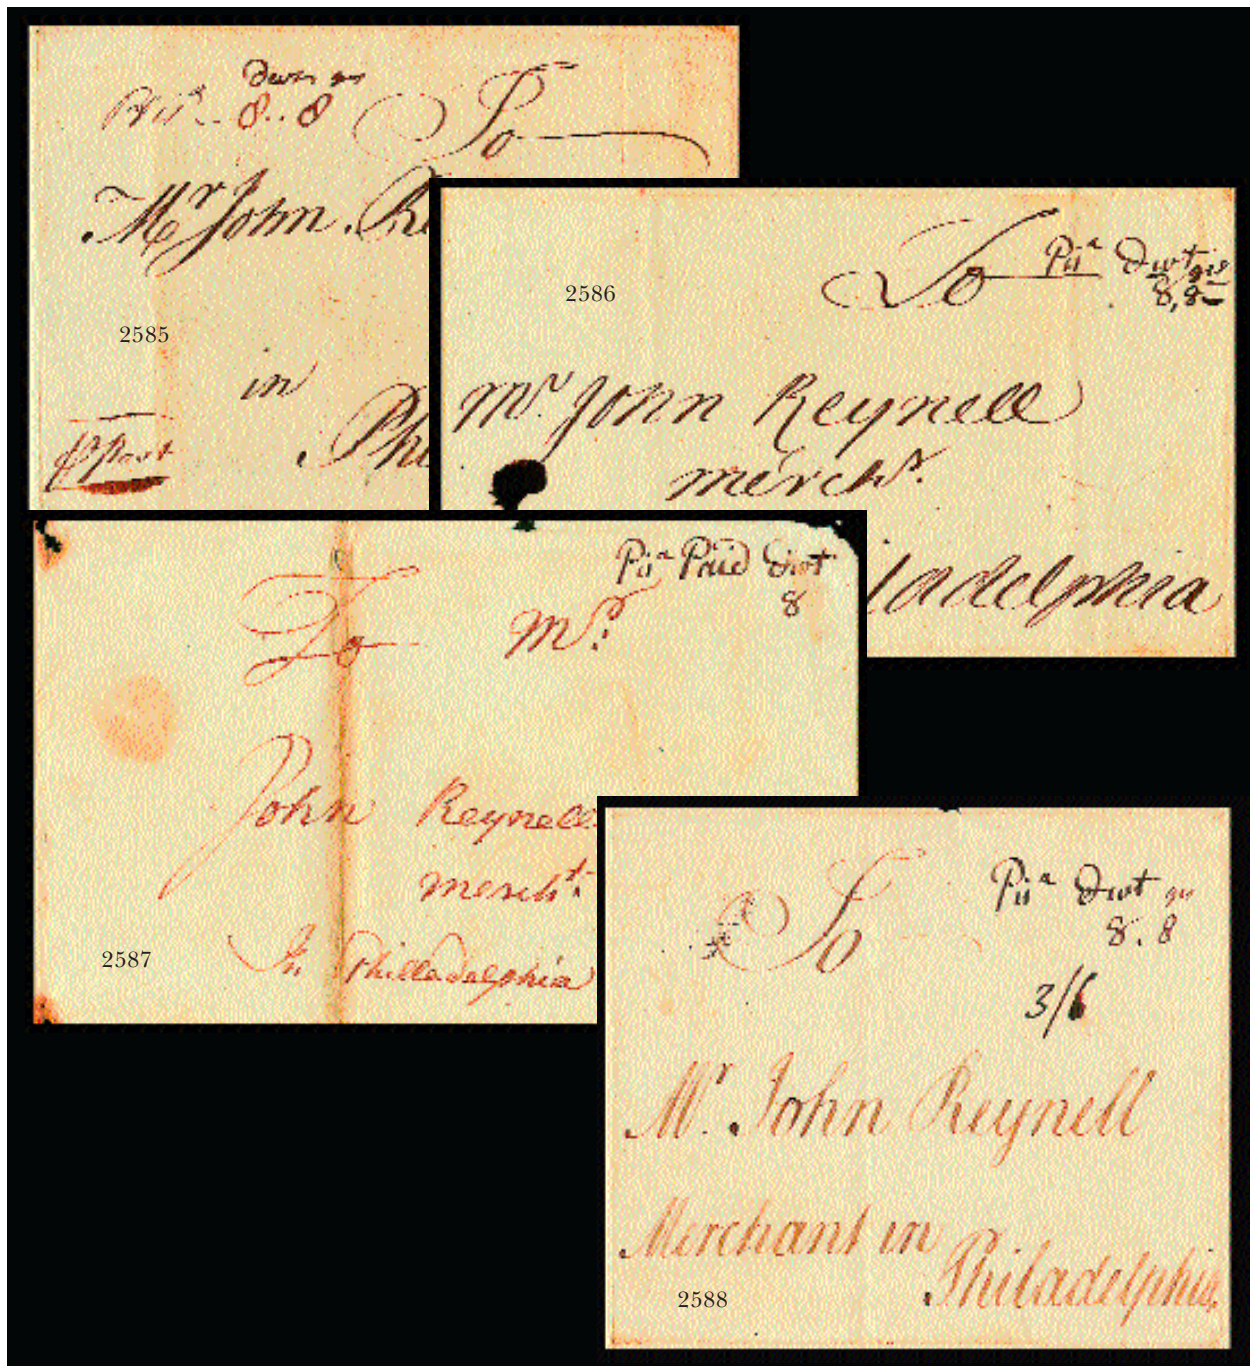 Dwts grs
8..8
To
Mr John
2585
in
p Post
To
Dwt grs
8,8
2586
Mr John Reynell
mercht.
ladelphia
Paid Dwt
8
To Mr.
John Reynell
mercht.
In Philladelphia
2587
To
Dwt grs
8.8
3/6
Mr. John Reynell
Merchant in
Philadelphia
2588